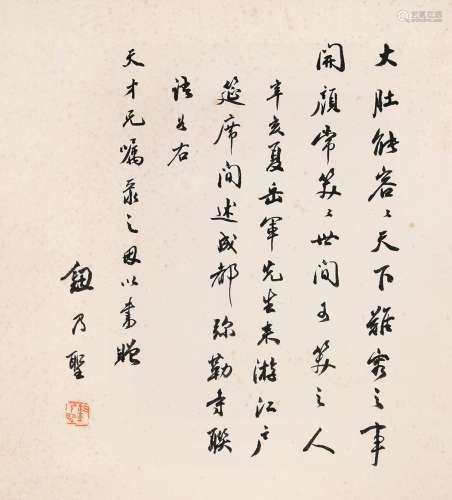 大肚能容々天下難容之事
開顏常笑々世間可笑之人
辛亥夏岳軍先生來游江戶
筵席間述成都弥勒寺聯
語如右
天才兄囑錄之因以書贈
鈕乃聖